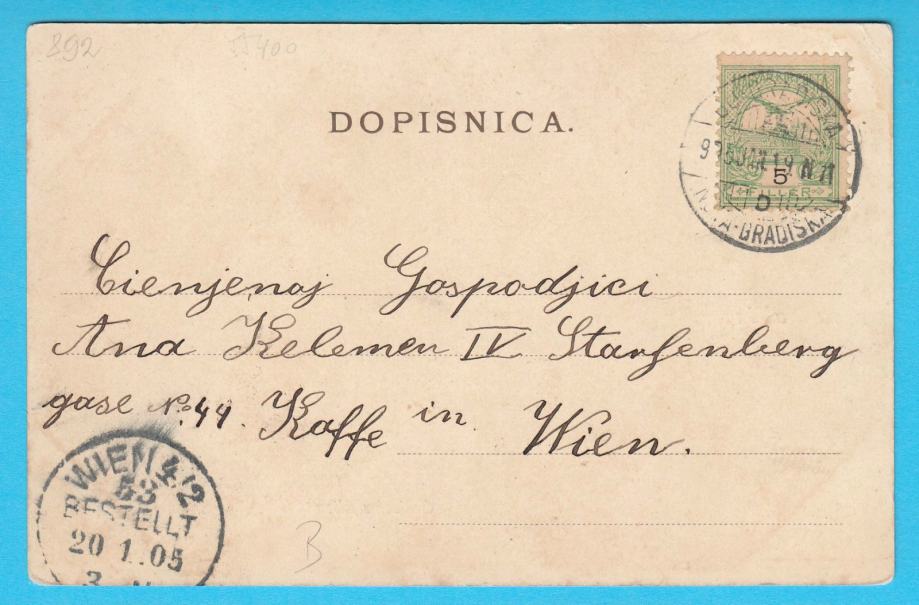 892
400
DOPISNICA.
5
FILLER
905 JAN. 19
GRADIŠKA
Cienjenoj Gospodjici
Ana Kelemen IV Starhenberg
gase No. 44. Kaffe in Wien.
WIEN 4/2
53
BESTELLT
20 1.05
3
B